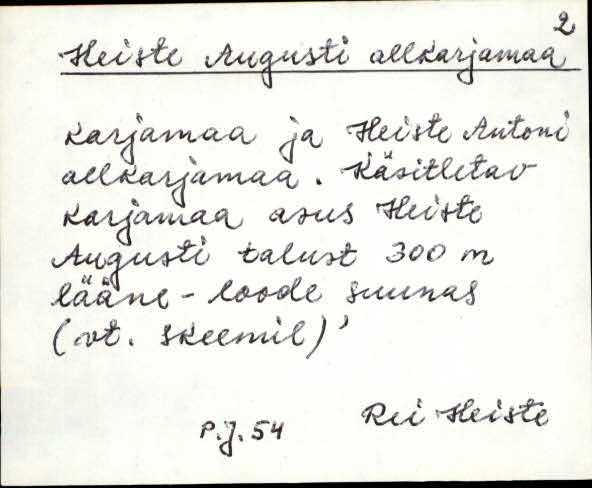 2
Heiste Augusti allkarjamaa
karjamaa ja Heiste Antoni
allkarjamaa. Käsitletav
karjamaa asus Heiste
Augusti talust 300 m
lääne-loode suunas
(vt. skeemil)'
P.J. 54 Rei Heiste